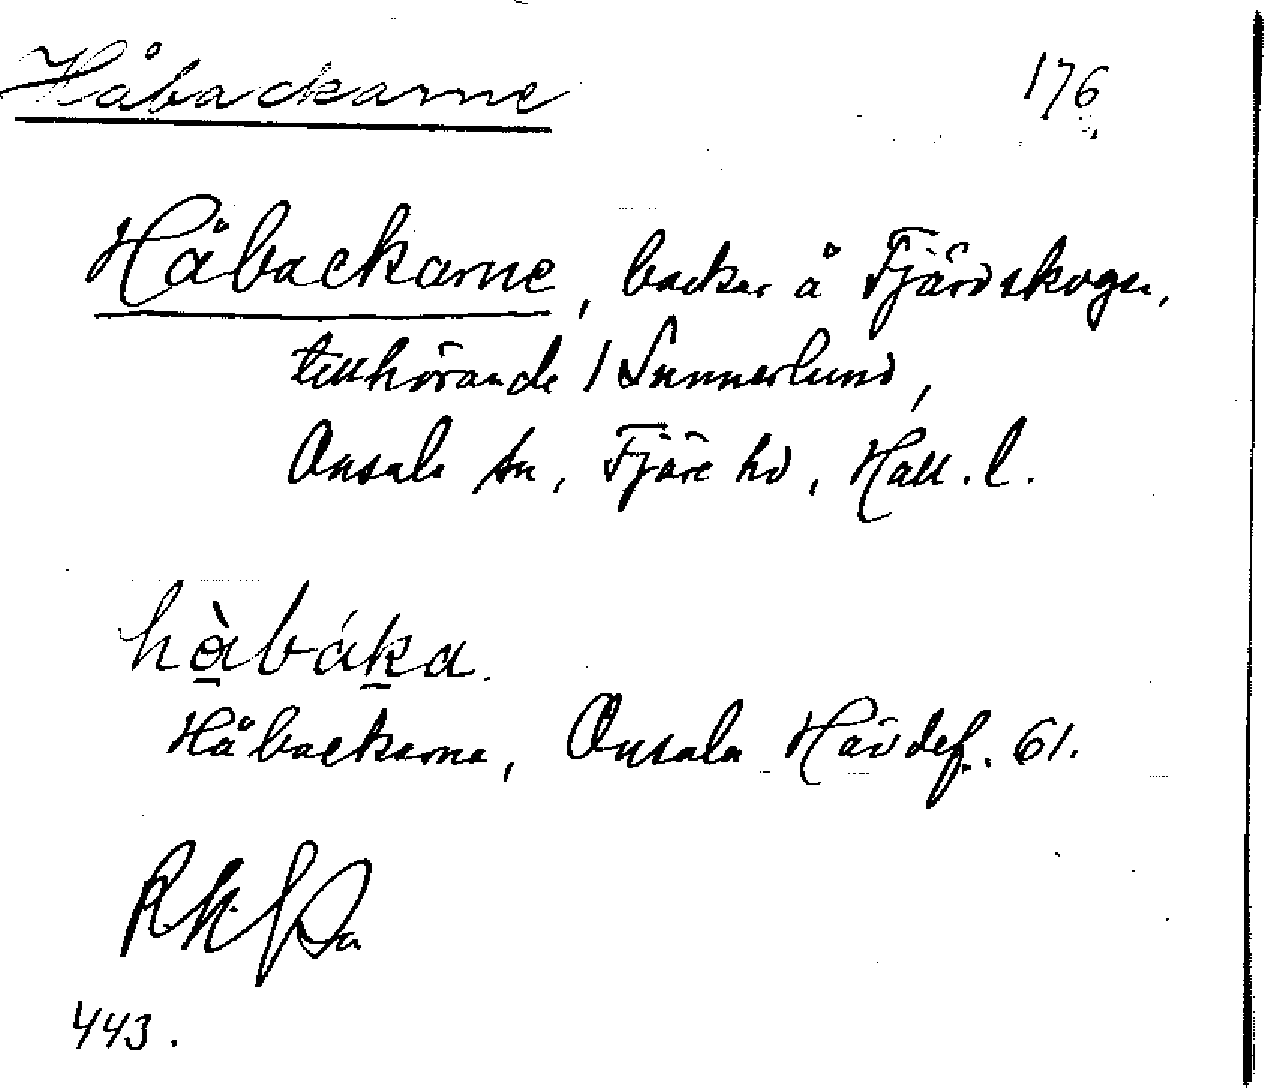 Håbackarne 176
Håbackarne, backar å Fjärdskogen,
tillhörande 1 Sunnerlund,
Onsala sn, Fjäre hd, Hall. l.
hàbáka.
Håbackarna, Onsala Hävdef. 61.
443.